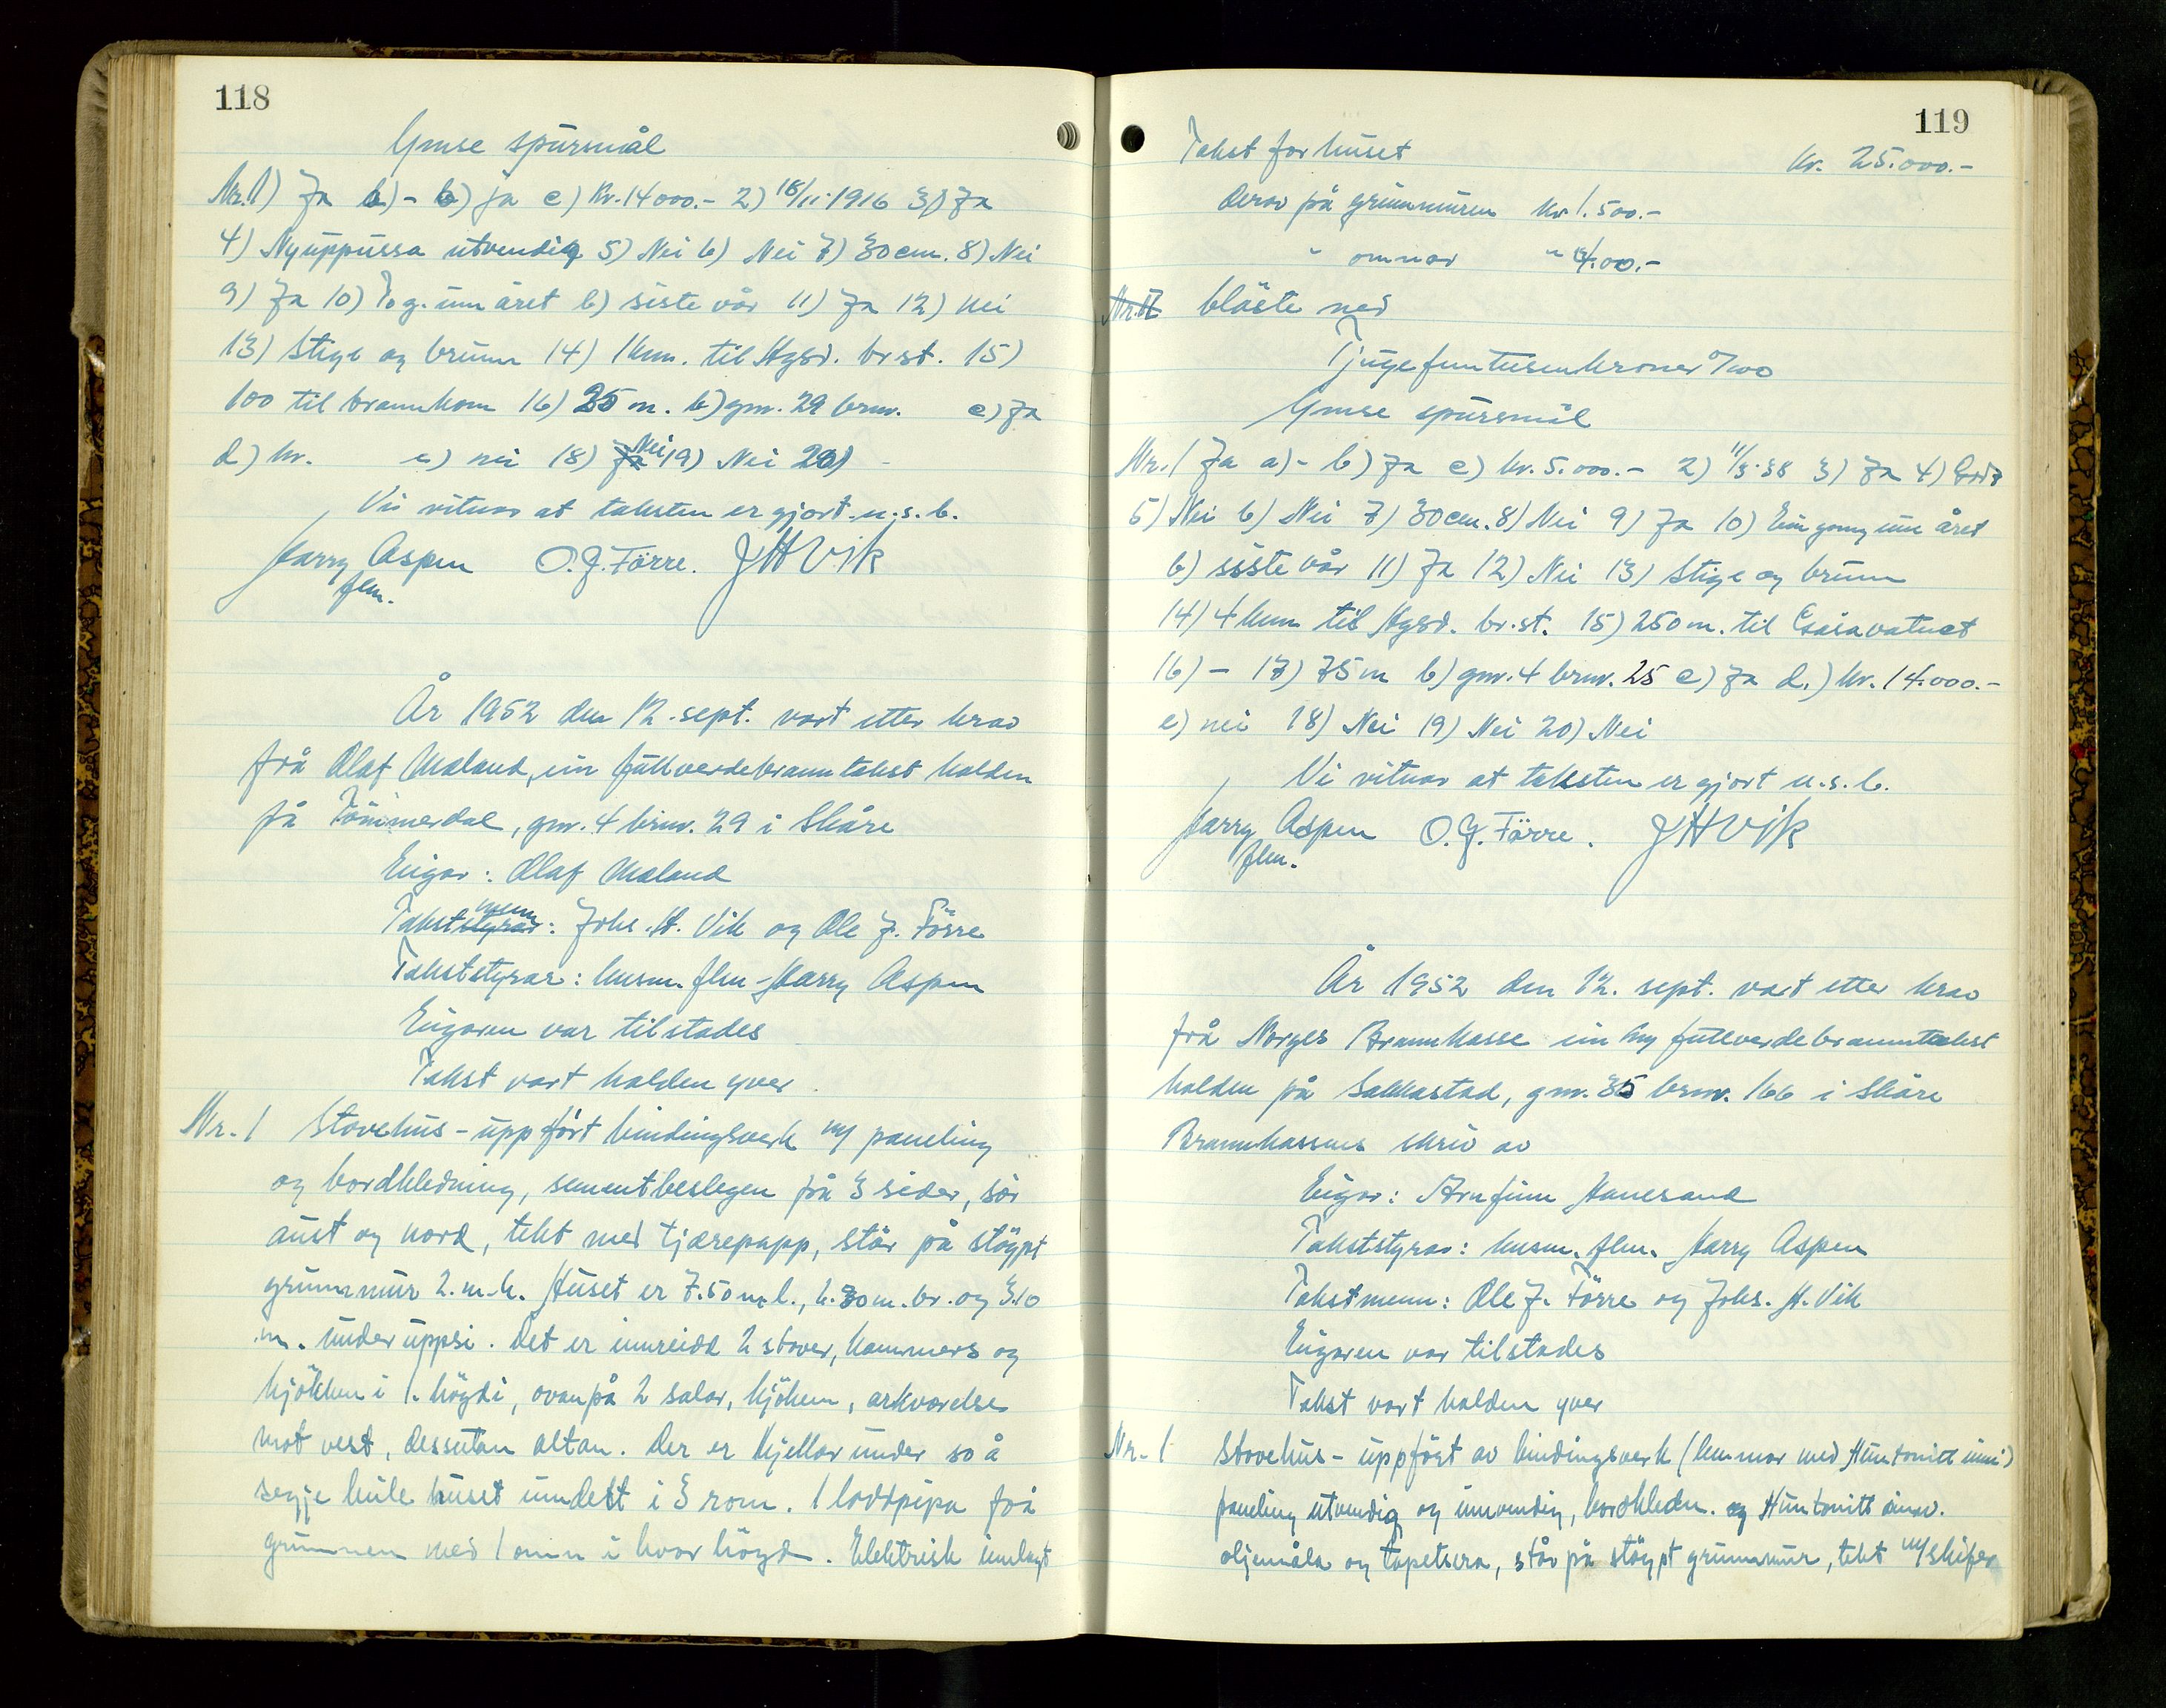 118
Ymse spursmål
Nr. 1) Ja a) - b) ja c) kr. 14000.- 2) 18/11-1916 3) Ja
4) Nyuppussa utvendig 5) Nei 6) Nei 7) 30 cm. 8) Nei
9) Ja 10) To g. um året b) siste vår 11) Ja 12) nei
13) Stige og brunn 14) 1 km. til Hgsd. br.st. 15)
100 til brannkom 16) 25 m. b) gnr. 29 brnr. c) Ja
d) kr. e) nei 18) Nei 19) Nei 20) -
Vi vitnar at taksten er gjort u.s.b.
Harry Aspen O. J. Förre. J H Vik
flm.
År 1952 den 12. sept. vart etter krav
frå Olaf Maland, ein fullverdebranntakst halden
på Tömmerdal, gnr. 4 brnr. 29 i Skåre
Eigar: Olaf Maland
Takstmenn: Johs. H. Vik og Ole J. Förre
Takststyrar: lensm. flm Harry Aspen
Eigaren var tilstades
Takst vart halden yver
Nr. 1 Stovehus - uppfört bindingsverk m/ paneling
og bordkledning, sementbeslegen på 3 sider, sör
aust og nord, tekt med tjærepapp, står på stöypt
grunnmur 2. m. h. Huset er 7.50 m. l., 6.30 m. br. og 3.10
m. under uppsi. Det er innreidd 2 stover, kammers og
kjökken i 1. högdi, ovanpå 2 salar, kjöken, arkvorelse
mot vest, dessutan altan. Der er kjellar under so å
segje heile huset inndelt i 3 rom. 1 loddpipa frå
grunnen med 1 omn i kvar högd. Elektrisk innlagt
119
Takst for huset kr. 25.000.-
derav på grunnmuren kr 1.500.-
" omnar " 400.-
Nr. II bläste ned
Tjugefemtusenkroner 0/100
Ymse spursmål
Nr. 1 Ja a) - b) Ja c) kr. 5.000.- 2) 11/3-38 3) Ja 4) Godt
5) Nei 6) Nei 7) 30 cm. 8) Nei 9) Ja 10) Ein gong um året
b) siste vår 11) Ja 12) Nei 13) Stige og brunn
14) 4 km til Hgsd. br.st. 15) 250 m. til
16) - 17) 75 m b) gnr. 4 brnr. 25 c) Ja d.) kr. 14.000.-
e) nei 18) Nei 19) Nei 20) Nei
Vi vitnar at taksten er gjort u.s.b.
Harry Aspen O. J. Förre. J H Vik
flm.
År 1952 den 12. sept. vart etter krav
frå Norges Brannkasse ein ny fullverdebranntakst
halden på Sakkastad, gnr. 35 brnr. 166 i Skåre
Brannkassens skriv av
Eigar: Arnfinn Hanesand
Takststyrar: lensm. flm. Harry Aspen
Takstmenn: Ole J. Förre og Johs. H. Vik
Eigaren var tilstades
Takst vart halden yver
Nr. 1 Stovehus - uppfört av bindingsverk (lemmar med Huntonitt inni)
paneling utvendig og innvendig, bordkledn. og Huntonitt innv.
oljemåla og tapetsera, står på stöypt grunnmur, tekt m/ skifer